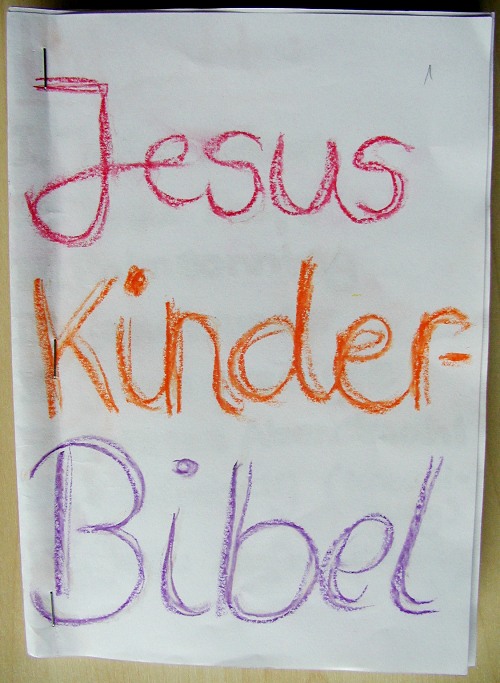 1
Jesus
Kinder-
Bibel